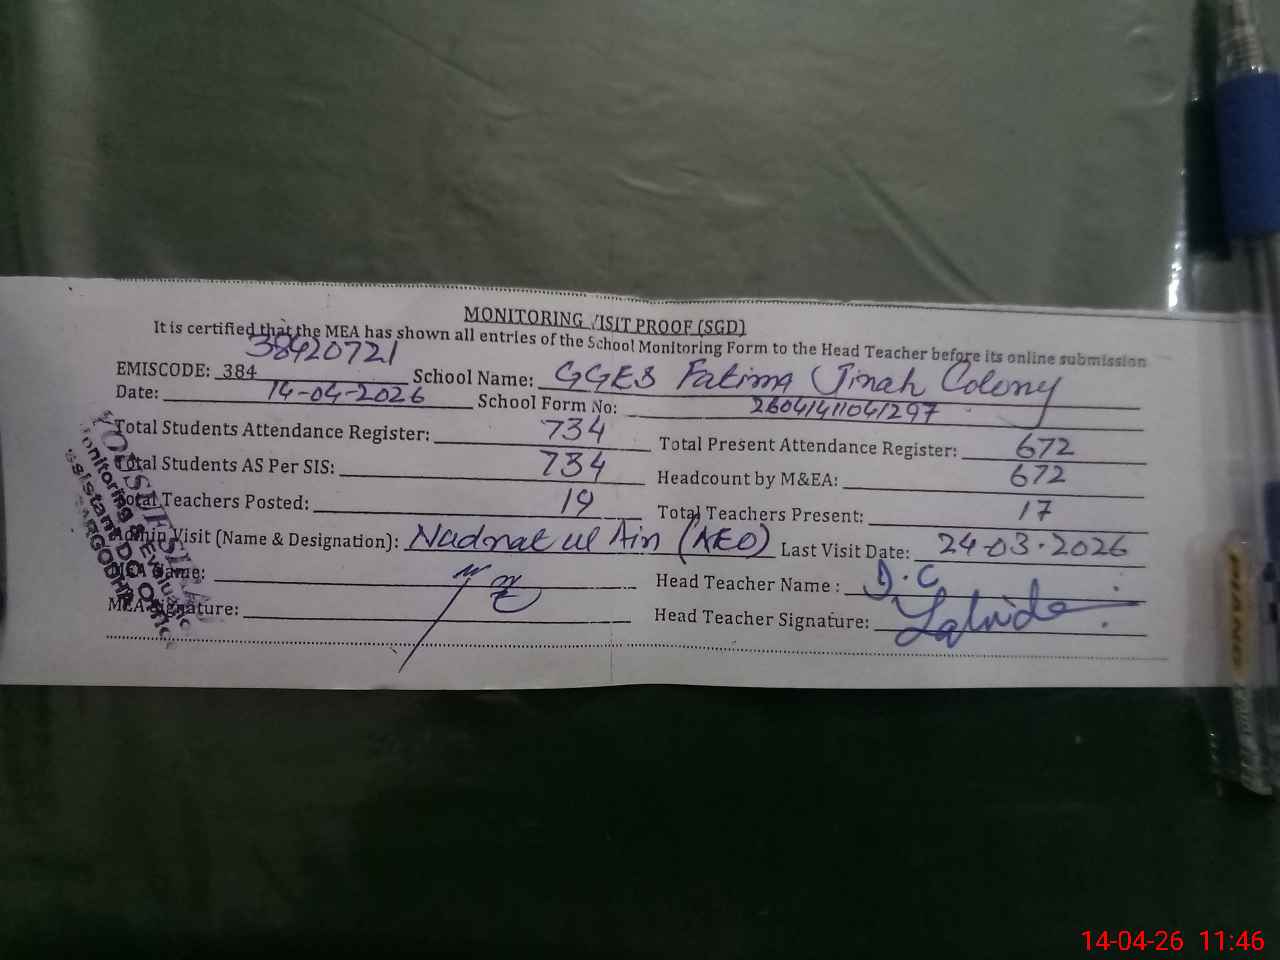 MONITORING VISIT PROOF (SGD)
It is certified that the MEA has shown all entries of the School Monitoring Form to the Head Teacher before its online submission
38420721
EMISCODE: 384 School Name: GGES Fatima Jinah Colony
Date: 14-04-2026 School Form No: 26041411041297
Total Students Attendance Register: 734 Total Present Attendance Register: 672
Total Students AS Per SIS: 734 Headcount by M&EA: 672
Total Teachers Posted: 19 Total Teachers Present: 17
Admin Visit (Name & Designation): (AEO) Last Visit Date: 24-03-2026
MEA Name: Head Teacher Name : D.C
MEA Signature: Head Teacher Signature:
Monitoring & Evaluation
Assistant DO Office
SARGODHA
PIANO
14-04-26 11:46